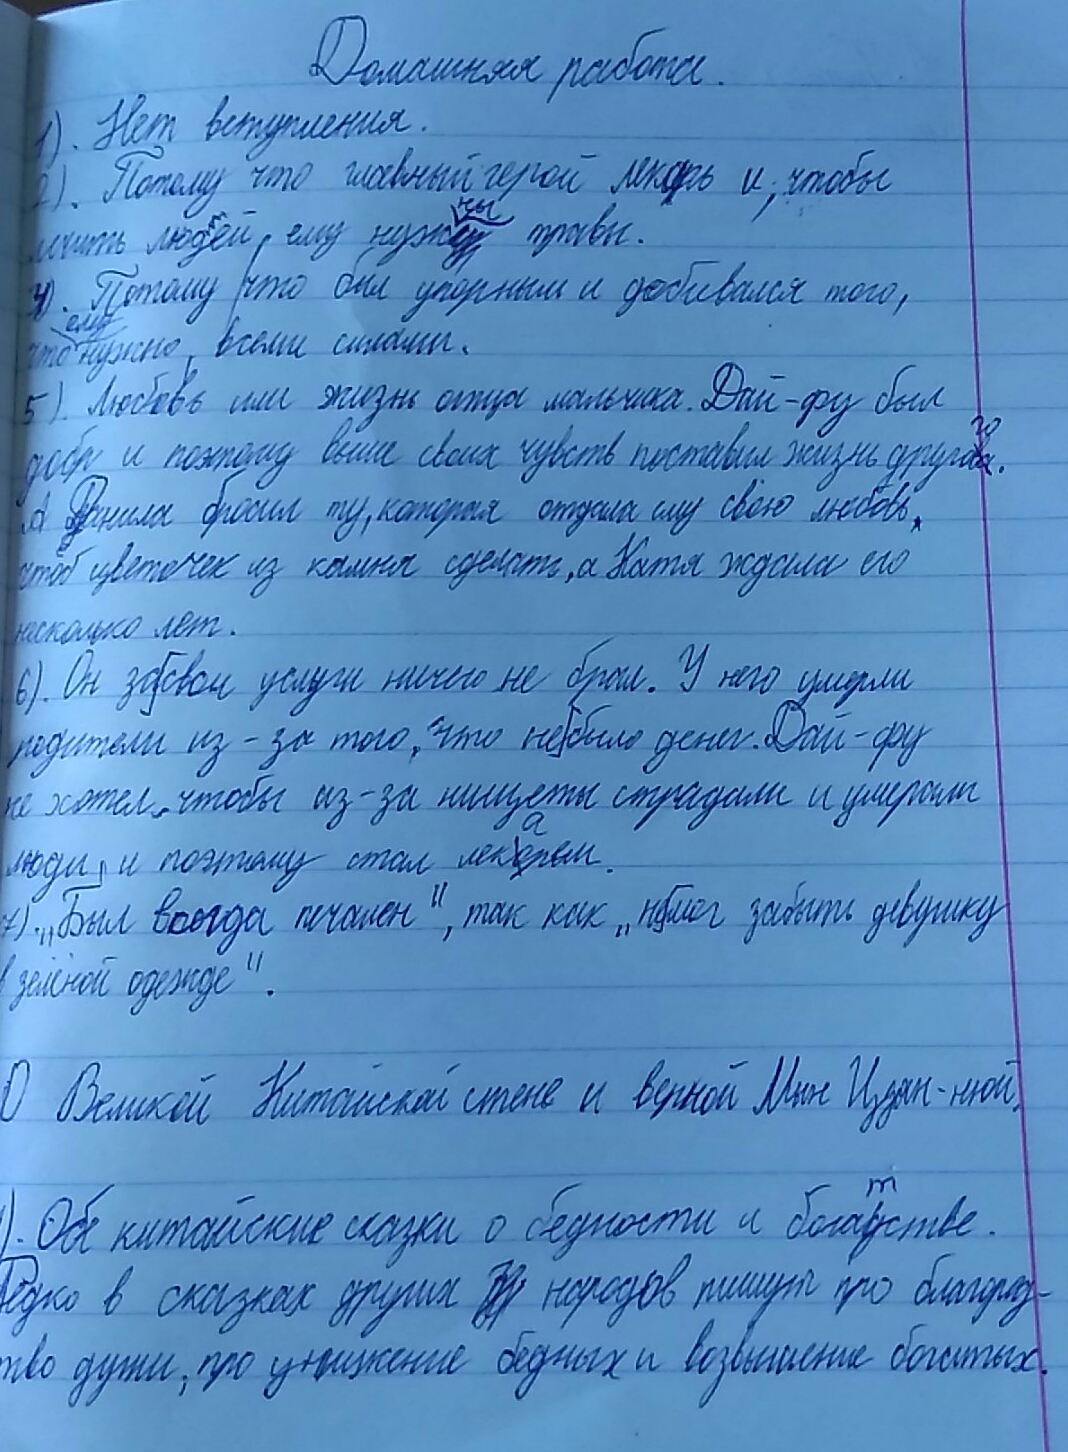 Домашняя работа.
1). Нет вступления.
2). Потому что главный герой лекарь и, чтобы
лечить людей, ему нужны травы.
4). Потому что был упорным и добивался того,
что ему нужно, всеми силами.
5). Любовь или жизнь отца мальчика. Дай-фу был
добр и поэтому выше своих чувств поставил жизнь другого.
А Данила бросил ту, которая отдала ему свою любовь,
чтоб цветочек из камня сделать, а Катя ждала его
несколько лет.
6). Он за свои услуги ничего не брал. У него умерли
родители из-за того, что не было денег. Дай-фу
не хотел, чтобы из-за нищеты страдали и умерали
люди, и поэтому стал лекарем.
7). „Был всегда печален", так как „не мог забыть девушку
в зелёной одежде".
О Великой Китайской стене и верной Мын Цзян-нюй.
1). Обе китайские сказки о бедности и богатстве.
Редко в сказках других народов пишут про благород-
тво души, про унижение бедных и возвышение богатых.